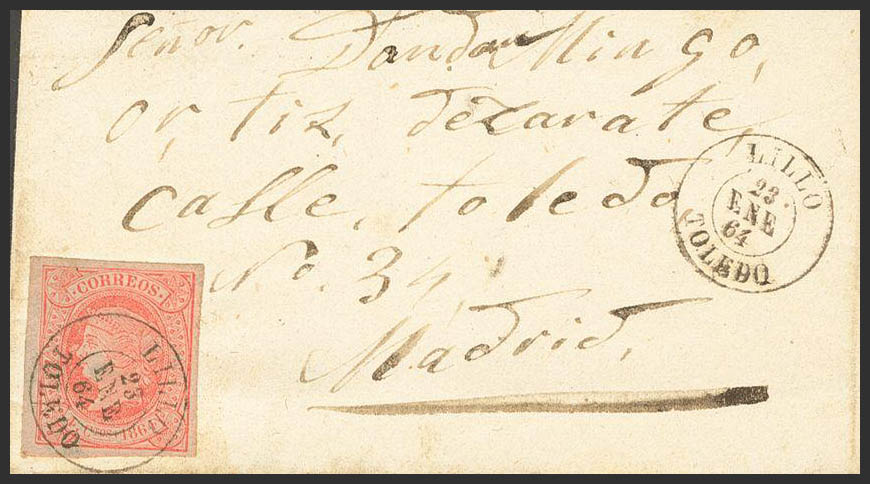 Señor. Dandor Mingo,
or, tiz, dezarate,
calle, toledo
No. 34,
Madrid,
LILLO
23
ENE
64
TOLEDO
CORREOS
LILLO
23
ENE
64
TOLEDO
1864